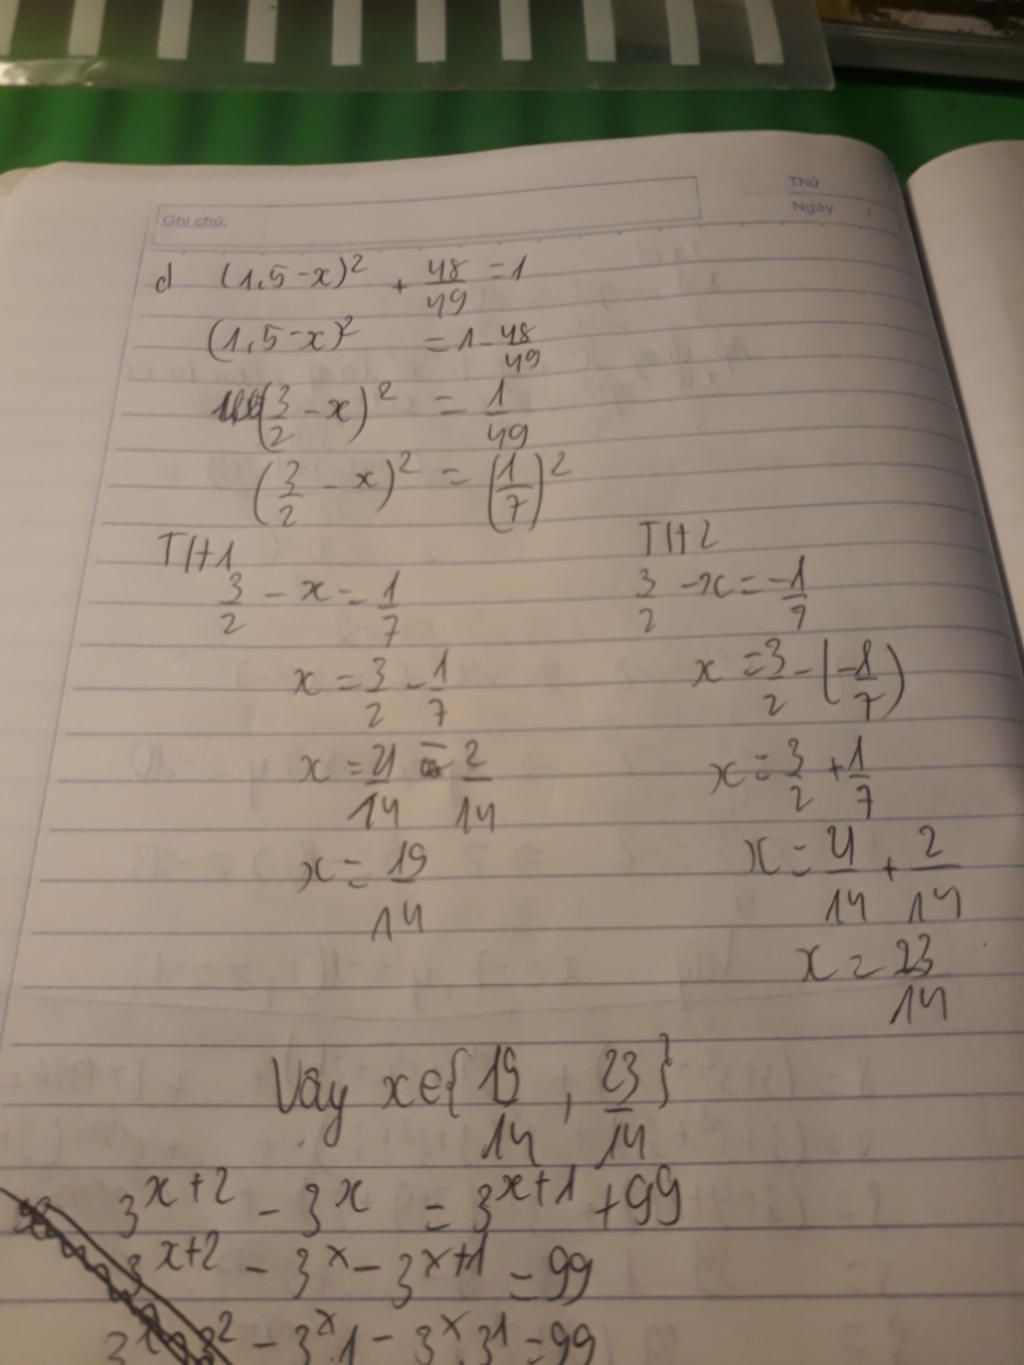 Thứ
Ghi chú:
Ngày /
d (1,5-x)² + 48/49 = 1
(1,5-x)² = 1 - 48/49
(3/2 - x)² = 1/49
(3/2 - x)² = (1/7)²
TH1
3/2 - x = 1/7
x = 3/2 - 1/7
x = 21/14 - 2/14
x = 19/14
TH2
3/2 - x = -1/7
x = 3/2 - (-1/7)
x = 3/2 + 1/7
x = 21/14 + 2/14
x = 23/14
Vậy x∈{19/14, 23/14}
3^x+2 - 3^x = 3^x+1 + 99
3^x+2 - 3^x - 3^x+1 = 99
3^x.3² - 3^x.1 - 3^x.3¹ = 99